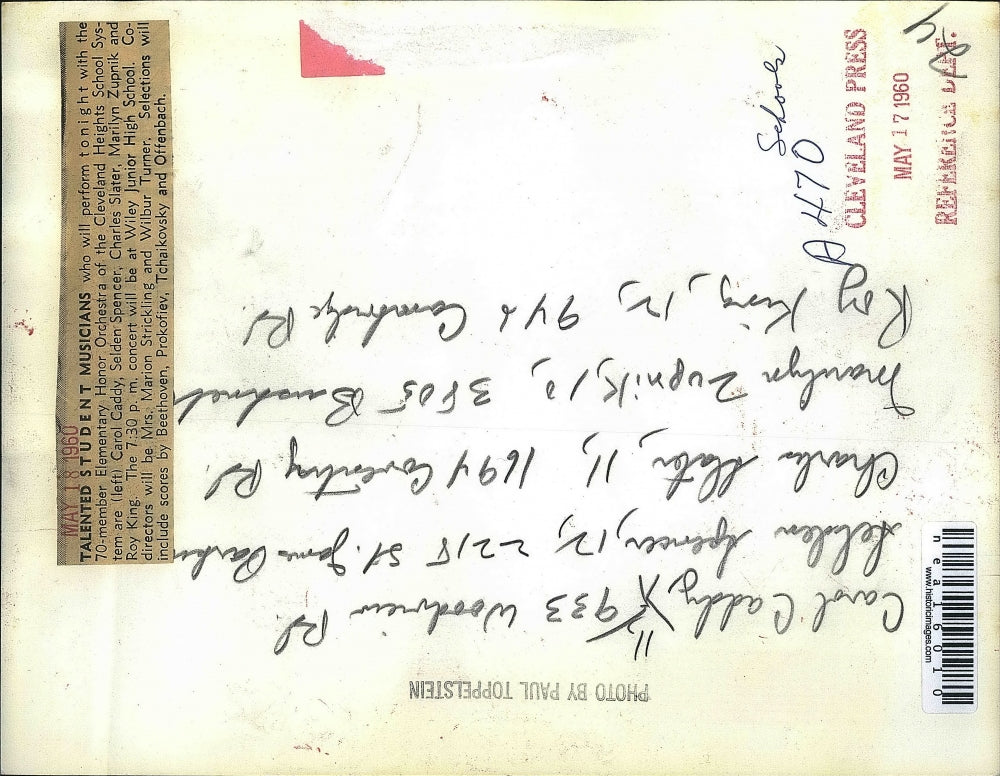 MAY 18 1960
TALENTED STUDENT MUSICIANS who will perform tonight with the
70-member Elementary Honor Orchestra of the Cleveland Heights School Sys-
tem are (left) Carol Caddy, Selden Spencer, Charles Slater, Marilyn Zupnik and
Roy King. The 7:30 p. m. concert will be at Wiley Junior High School. Co-
directors will be Mrs. Marion Strickling and Wilbur Turner. Selections will
include scores by Beethoven, Prokofiev, Tchaikovsky and Offenbach.
Schools
A 470
CLEVELAND PRESS
MAY 17 1960
REFERENCE DEPT.
PHOTO BY PAUL TOPPELSTEIN
Carol Caddy, 11, 933 Woodview Rd.
Selden Spencer, 12, 2218 St. James
Charles Slater, 11, 1694 Coventry Rd.
Marilyn Zupnik, 3505
Roy King, 12, 946 Cambridge Rd.
nea16010
www.historicimages.com